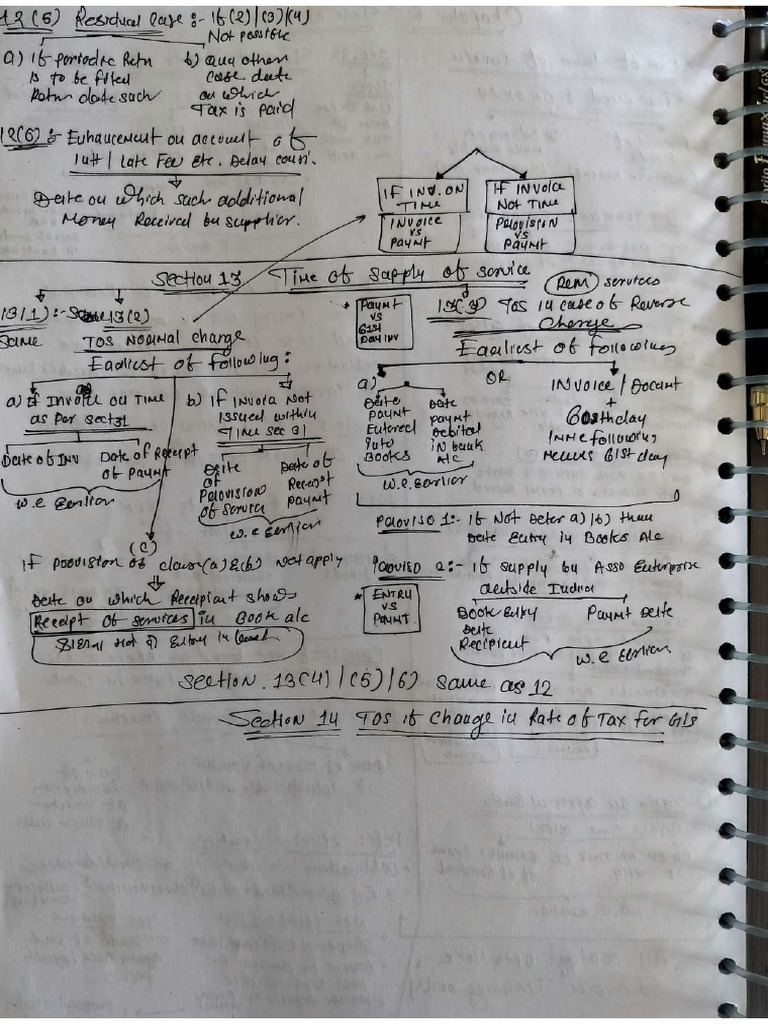 12(5) Residual Case :- If (2)|(3)|(4)
Not possible
a) If periodic Retn
is to be filed
Retn date such
b) Any other
case date
on which
Tax is paid
12(6) :- Enhancement on account of
Intt | Late Fee etc. Delay
Date on which such additional
Money Received by supplier.
IF INV. ON
TIME
INVOICE
VS
PAYMT
IF INVOICE
NOT TIME
PROVISION
VS
PAYMT
Section 13 Time of Supply of Service
13(1) :- 13(2)
Same
TOS Normal charge
Earliest of following :
a) If Invoice on Time
as per sect 31
Date of INV
Date of Receipt
of Paymt
w.e Earlier
b) If Invoice Not
issued within
Time sec 31
Date
of
Provision
of service
Date of
Receipt
Paymt
w.e Earlier
(c)
If provision of clause (a) & (b) Not apply
Date on which Receipient show
Receipt of services in Book a/c
Entry in
PAYMT
VS
61st
Day INV
RCM services
13(3) TOS in case of Reverse
Charge
Earliest of following
a)
Date
Paymt
Entered
into
Books
Date
Paymt
Debited
in bank
A/c
w.e Earlier
OR
Invoice / Documt
+
60thday
Imme following
means 61st day
Proviso 1 :- If Not Deter a)|b) then
Date Entry in Books A/c
Proviso 2 :- If supply by Asso Enterprise
outside India
* ENTRY
VS
PAYMT.
Book Entry
Date
Recipient
Paymt Date
w.e Earlier
Section. 13(4)|(5)|6) same as 12
Section 14 TOS if Change in Rate of Tax for G/S